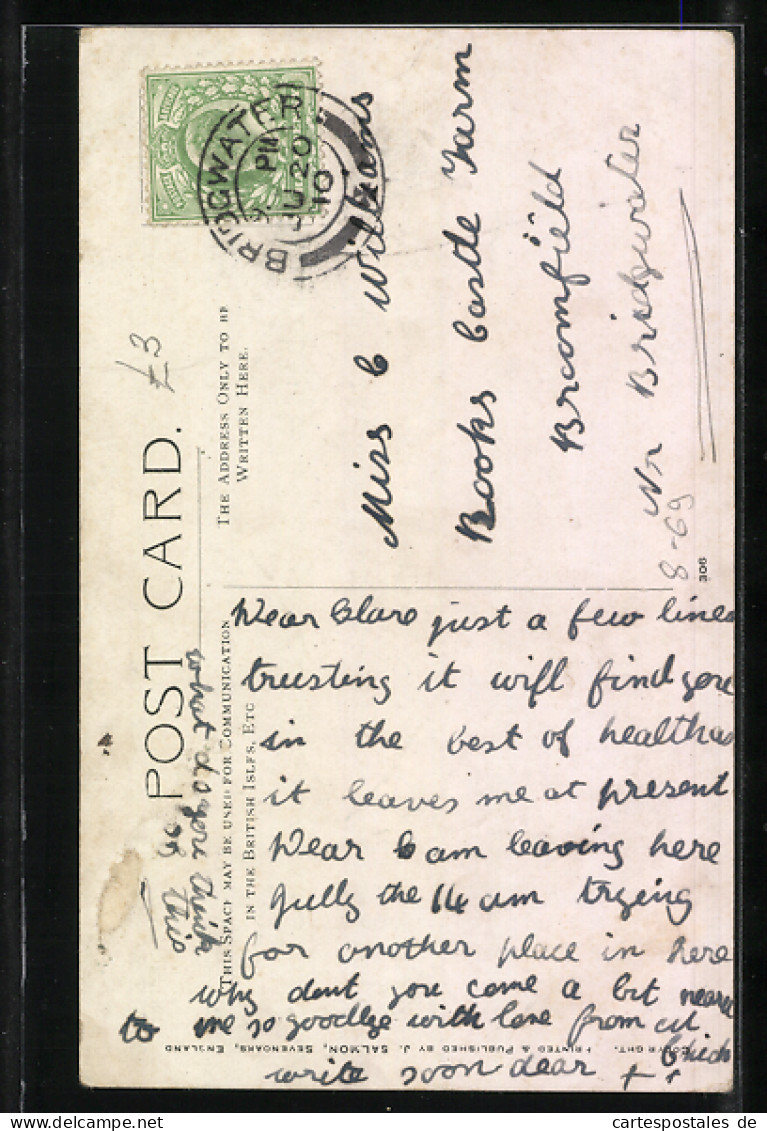 POST CARD.
£3
THE ADDRESS ONLY TO BE
WRITTEN HERE.
BRIDGWATER
PM
JU 20
10
Miss C Williams
Rooks Castle Farm
Broomfield
Nr Bridgwater
8-69
306
THIS SPACE MAY BE USED FOR COMMUNICATION
IN THE BRITISH ISLES, ETC
what do you think
of this
Dear Clare just a few lines
trusting it will find you
in the best of health as
it leaves me at present
Dear C am leaving here
Jully the 14 am trying
for another place in here
why dont you come a bit nearer
to me so goodbye with love from
write soon dear
COPYRIGHT. PRINTED & PUBLISHED BY J. SALMON, SEVENOAKS, ENGLAND
cartespostales de